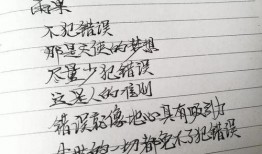 雨果
不犯错误
那是天使的梦想
尽量少犯错误
这是人的准则
错误就像地心具有吸引力
尘世的一切都免不了犯错误